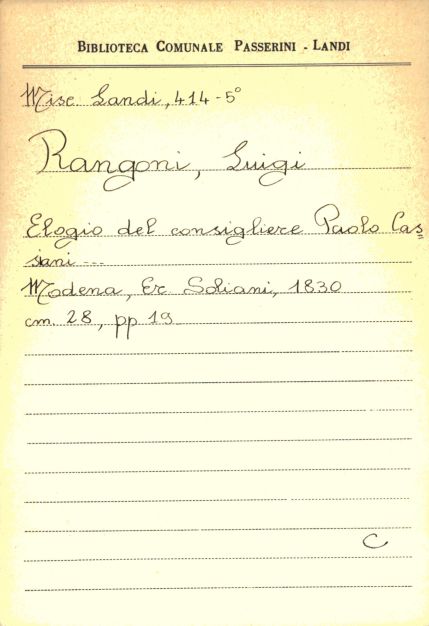 BIBLIOTECA COMUNALE PASSERINI - LANDI
Misc. Landi, 414-5°
Rangoni, Luigi
Elogio del consigliere Paolo Cas=
siani ---
Modena, Er. Soliani, 1830
cm. 28, pp 19
C